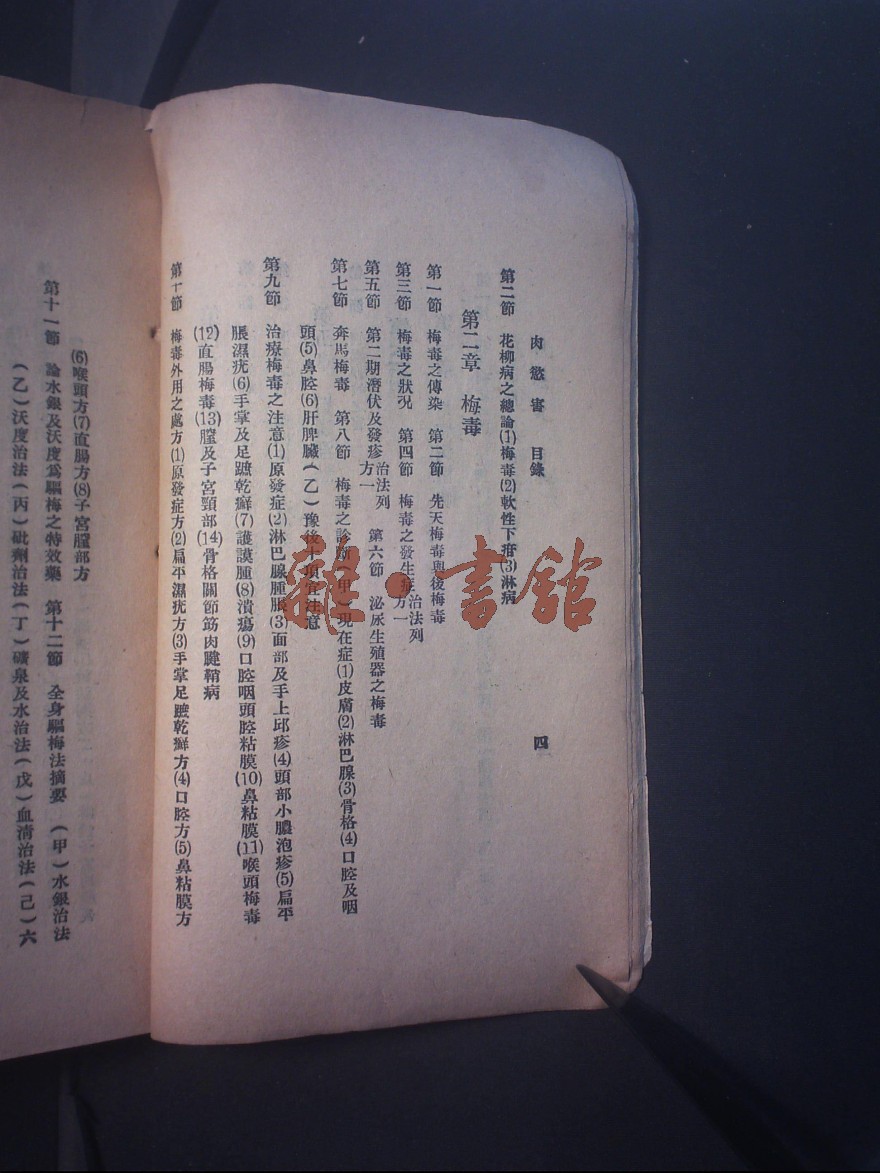 肉慾害　目錄　四
第二節　花柳病之總論(1)梅毒(2)軟性下疳(3)淋病
第二章　梅毒
第一節　梅毒之傳染　第二節　先天梅毒與後梅毒
第三節　梅毒之狀況　第四節　梅毒之發生症治法列方一
第五節　第二期潛伏及發疹治法列方一　第六節　泌尿生殖器之梅毒
第七節　奔馬梅毒　第八節　梅毒之診斷(甲)現在症(1)皮膚(2)淋巴腺(3)骨格(4)口腔及咽
頭(5)鼻腔(6)肝脾臟(乙)豫後十項宜注意
第九節　治療梅毒之注意(1)原發症(2)淋巴腺腫脹(3)面部及手上邱疹(4)頭部小膿泡疹(5)扁平
脹濕疣(6)手掌及足蹠乾癬(7)護謨腫(8)潰瘍(9)口腔咽頭腔粘膜(10)鼻粘膜(11)喉頭梅毒
(12)直腸梅毒(13)膣及子宮頸部(14)骨格關節筋肉腱鞘病
第十節　梅毒外用之處方(1)原發症方(2)扁平濕疣方(3)手掌足蹠乾癬方(4)口腔方(5)鼻粘膜方
(6)喉頭方(7)直腸方(8)子宮膣部方
第十一節　論水銀及沃度爲驅梅之特效藥　第十二節　全身驅梅法摘要　(甲)水銀治法
(乙)沃度治法(丙)砒劑治法(丁)礦泉及水治法(戊)血清治法(己)六
雜·書館